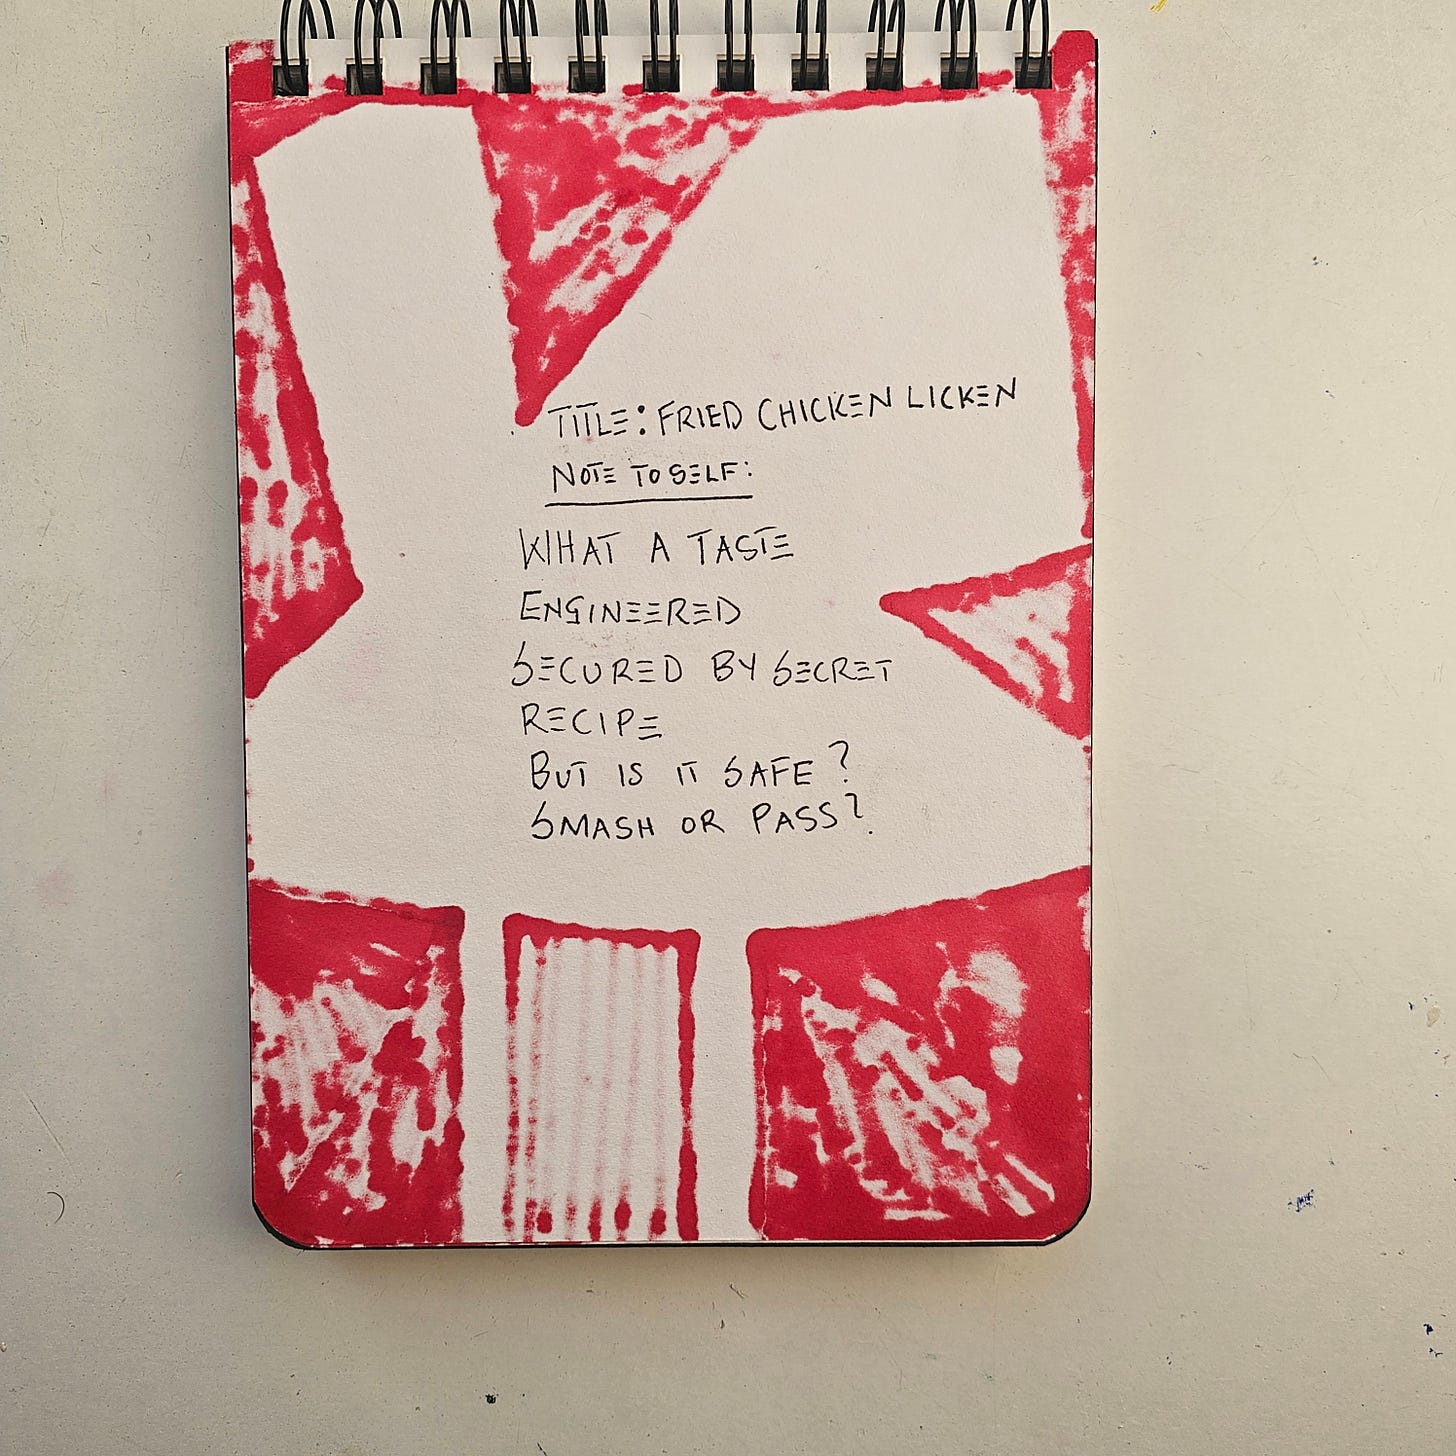 TITLE: FRIED CHICKEN LICKEN
NOTE TO SELF:
WHAT A TASTE
ENGINEERED
SECURED BY SECRET
RECIPE
BUT IS IT SAFE?
SMASH OR PASS?